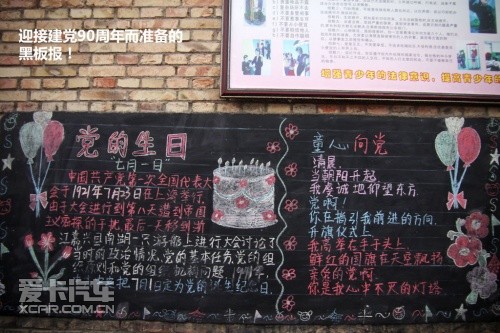 迎接建党90周年而准备的
黑板报！
增强青少年的法律意识，提高青少年
党的生日
"七月一日"
中国共产党第一次全国代表大
会于1921年7月23日在上海举行
由于大会进行到第八天遭到帝国
江嘉兴县南湖一只游船上进行大会讨论了
当时政治情况，党的基本任务党的组
织原则和党的组织机构问题
把7月1日定为党的诞生纪念日
童心向党
清晨
当朝阳升起
我虔诚地仰望东方
党啊！
你在指引我前进的方向
开旗仪式上
我高举右手于头上
鲜红的国旗在天空飘扬
亲爱的党啊
你是我心中不灭的灯塔
爱卡汽车
XCAR.COM.CN